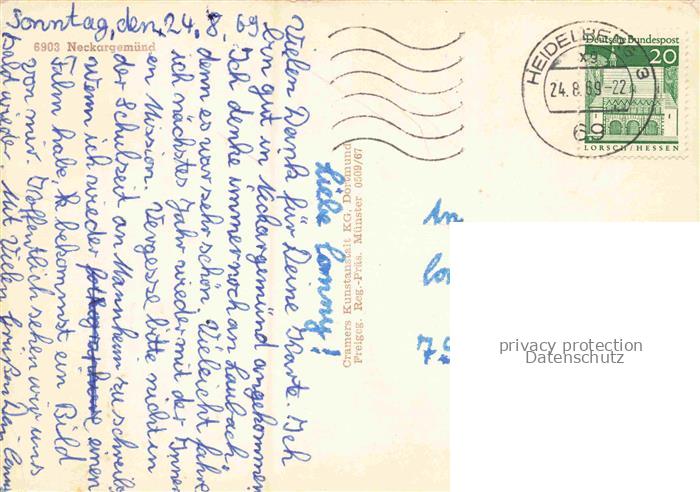 Sonntag, den, 24. 8. 69
6903 Neckargemünd
Liebe Conny!
Vielen Dank für Deine Karte. Ich
bin gut in Neckargemünd angekommen
Ich denke immer noch an Laubach.
denn es war sehr schön. Vieleicht fahre
ich nächstes Jahr wieder mit der Inner
en Mission. Vergesse bitte nicht in
der Schulzeit an Mannheim zu schreib
wenn ich wieder einen
Film habe, bekommst ein Bild
von mir. Hoffentlich sehen wir uns
bald wieder. Mit vielen Grüßen
Cramers Kunstanstalt KG, Dortmund
Freigeg. Reg.-Präs. Münster 0509/67
HEIDELBERG
24.8.69-22
69
Deutsche Bundespost
20
LORSCH/HESSEN
An
privacy protection
Datenschutz